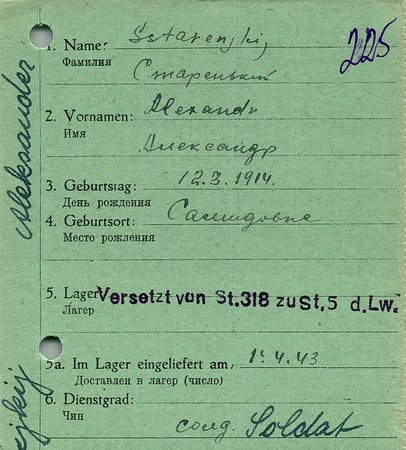 225
1. Name: Sstarenjkij
Фамилия
Старенький
2. Vornamen: Alexandr
Имя
Александр
3. Geburtstag: 12.3.1914.
День рождения
4. Geburtsort:
Место рождения
5. Lager Versetzt von St.318 zu St.5 d.Lw.
Лагер
5a. Im Lager eingeliefert am: 1. 4. 43
Доставлен в лагер (число)
6. Dienstgrad:
Чин
солд. Soldat
Aleksander